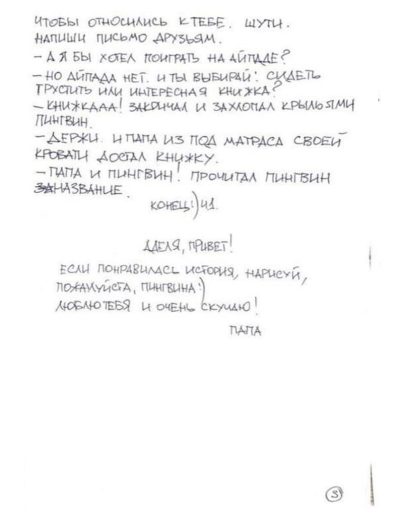 ЧТОБЫ ОТНОСИЛИСЬ К ТЕБЕ. ШУТИ.
НАПИШИ ПИСЬМО ДРУЗЬЯМ.
– А Я БЫ ХОТЕЛ ПОИГРАТЬ НА АЙПАДЕ?
– НО АЙПАДА НЕТ. И ТЫ ВЫБИРАЙ: СИДЕТЬ
ГРУСТИТЬ ИЛИ ИНТЕРЕСНАЯ КНИЖКА?
– КНИЖКААА! ЗАКРИЧАЛ И ЗАХЛОПАЛ КРЫЛЬЯМИ
ПИНГВИН.
– ДЕРЖИ. И ПАПА ИЗ ПОД МАТРАСА СВОЕЙ
КРОВАТИ ДОСТАЛ КНИЖКУ.
– ПАПА И ПИНГВИН! ПРОЧИТАЛ ПИНГВИН
НАЗВАНИЕ.
КОНЕЦ:) Ч1.
АДЕЛЯ, ПРИВЕТ!
ЕСЛИ ПОНРАВИЛАСЬ ИСТОРИЯ, НАРИСУЙ,
ПОЖАЛУЙСТА, ПИНГВИНА:)
ЛЮБЛЮ ТЕБЯ И ОЧЕНЬ СКУЧАЮ!
ПАПА
3